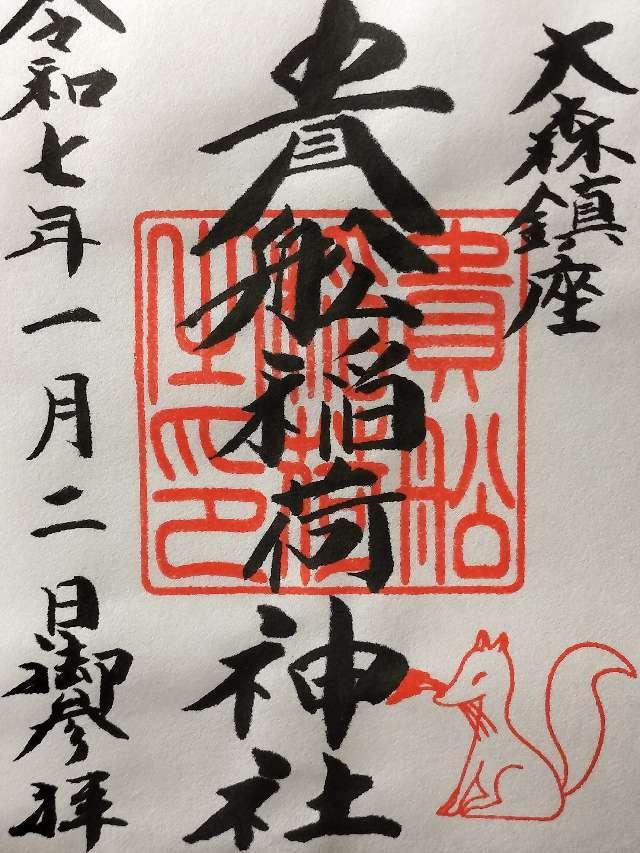 大森鎮座
貴船稲荷神社
令和七年一月二日御参拝
貴船
稲荷
之印